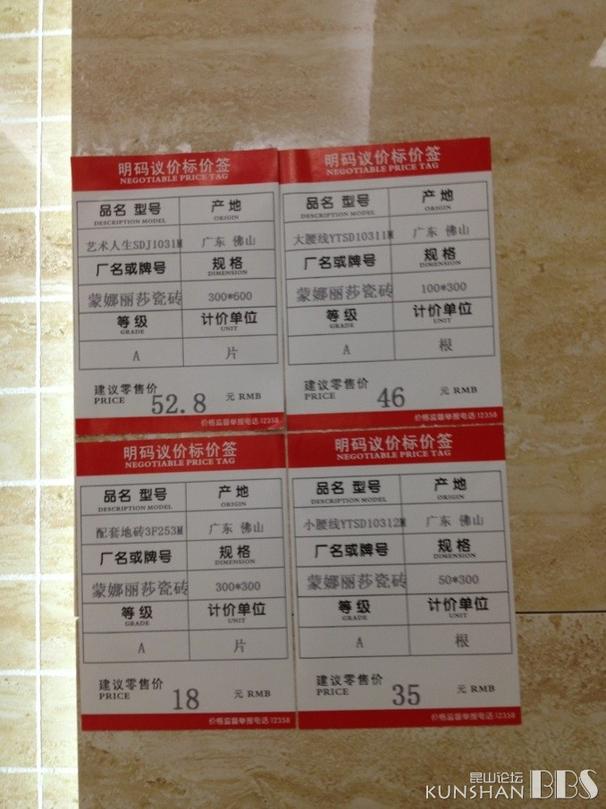 明码议价标价签
NEGOTIABLE PRICE TAG
品名 型号 产地
DESCRIPTION MODEL ORIGIN
艺术人生SDJ1031M 广东 佛山
厂名或牌号 规格
DIMENSION
蒙娜丽莎瓷砖 300*600
等级 计价单位
GRADE UNIT
A 片
建议零售价
PRICE 52.8 元 RMB
价格监督举报电话 12358
明码议价标价签
NEGOTIABLE PRICE TAG
品名 型号 产地
DESCRIPTION MODEL ORIGIN
大腰线YTSD10311M 广东 佛山
厂名或牌号 规格
DIMENSION
蒙娜丽莎瓷砖 100*300
等级 计价单位
GRADE UNIT
A 根
建议零售价
PRICE 46 元 RMB
价格监督举报电话 12358
明码议价标价签
NEGOTIABLE PRICE TAG
品名 型号 产地
DESCRIPTION MODEL ORIGIN
配套地砖3F253M 广东 佛山
厂名或牌号 规格
DIMENSION
蒙娜丽莎瓷砖 300*300
等级 计价单位
GRADE UNIT
A 片
建议零售价
PRICE 18 元 RMB
价格监督举报电话 12358
明码议价标价签
NEGOTIABLE PRICE TAG
品名 型号 产地
DESCRIPTION MODEL ORIGIN
小腰线YTSD10312M 广东 佛山
厂名或牌号 规格
DIMENSION
蒙娜丽莎瓷砖 50*300
等级 计价单位
GRADE UNIT
A 根
建议零售价
PRICE 35 元 RMB
价格监督举报电话 12358
昆山论坛
KUNSHAN BBS